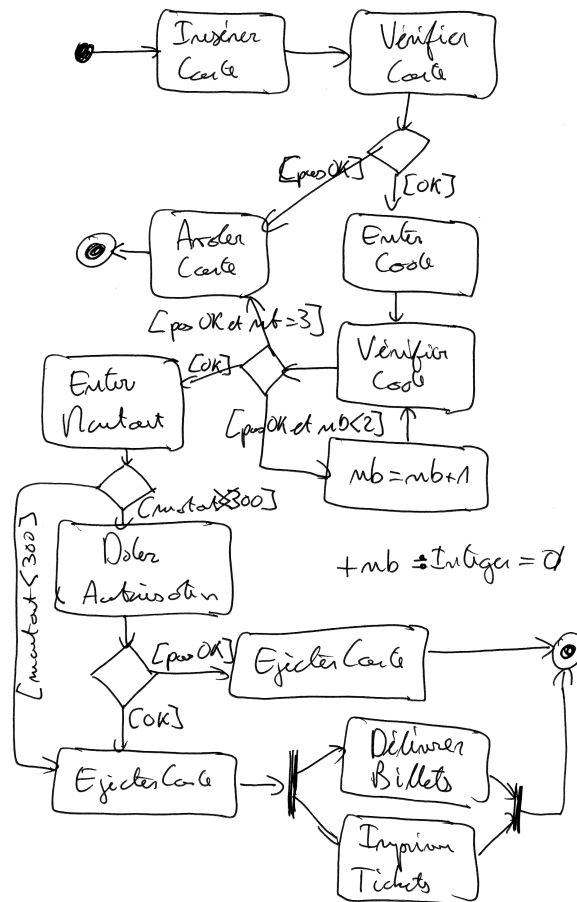 Insérer
Carte
Vérifier
Carte
[pas OK]
[OK]
Avaler
Carte
Enter
Code
[pas OK et nb=3]
Vérifier
Code
[OK]
Enter
Montant
[pas OK et nb<2]
nb=nb+1
300]
[montant<300]
Autorisation
+nb : Integer = 0
[pas OK]
Ejecter Carte
[OK]
Ejecter Carte
Délivrer
Billets
Imprimer
Tickets